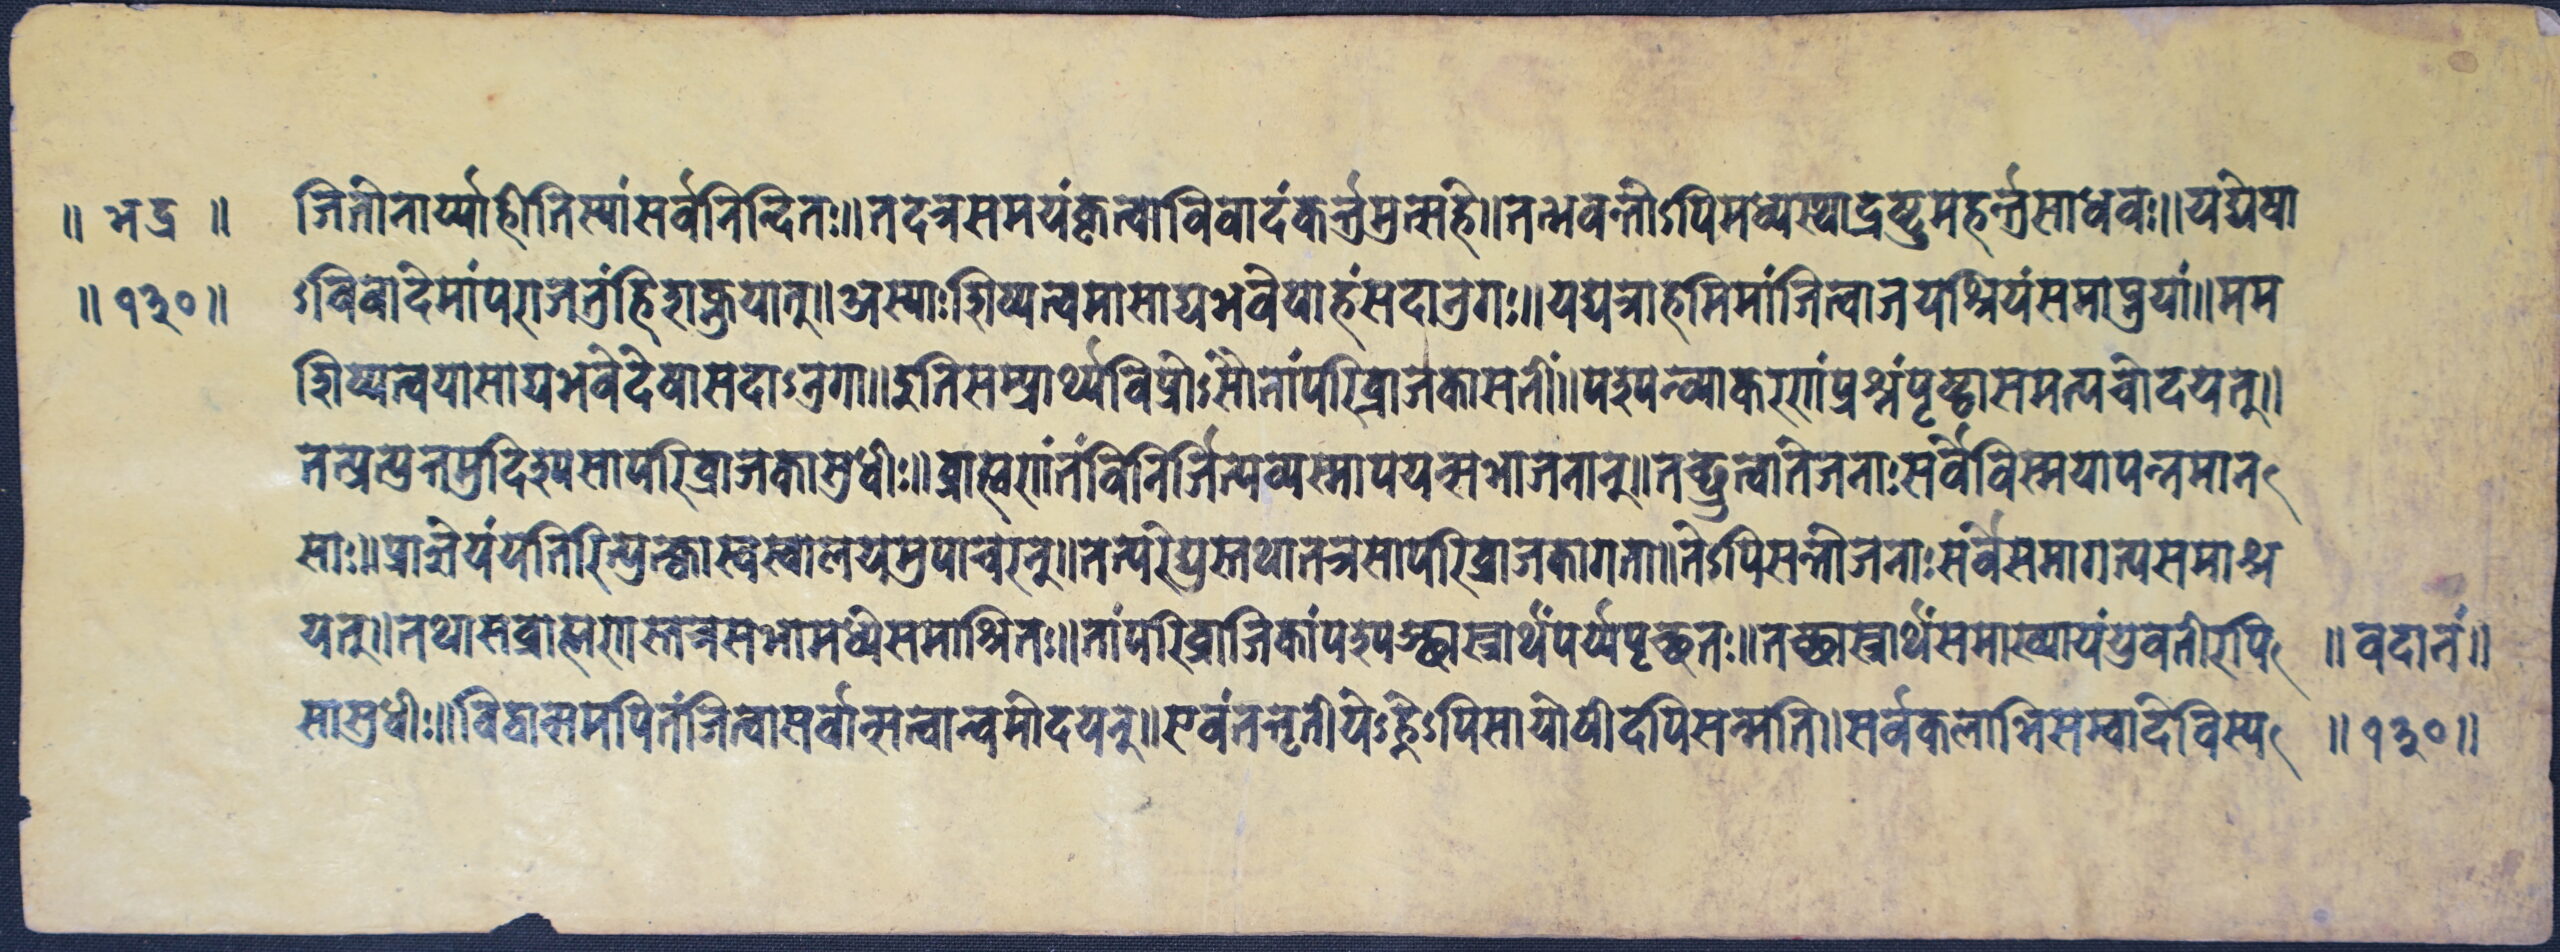 ॥ भद्र ॥ जितोनार्य्याहीतिस्यांसर्वनिन्दितः॥तदत्रसमयंकृत्वाविवादंकर्त्तुमुत्सहे॥तद्भवन्तोऽपिमध्यस्थाद्रष्टुमर्हन्तुसाधवः॥यद्येषा
॥१३०॥ ऽविवादेमांपराजेतुंहिशक्नुयात्॥अस्याःशिष्यत्वमासाद्यभवेयाहंसदानुगः॥यद्यत्राहमिमांजित्वाजयश्रियंसमाप्नुयां॥मम
शिष्यत्वयासाद्यभवेदेषासदाऽनुगा॥इतिसम्प्रार्थ्यविप्रोऽसौतांपरिव्राजकासतीं॥पश्यन्व्याकरणंप्रश्नंपृष्ट्वासमत्यचोदयत्॥
तत्प्रत्युत्तमुदिश्यसापरिव्राजकासुधीः॥ब्राह्मणंतंविनिर्जित्यव्यस्मापयत्सभाजनान्॥तच्छ्रुत्वातेजनाःसर्वेविस्मयापन्नमान
साः॥प्राज्ञेयंयतिरित्युत्क्वास्वस्वालयमुपाचरन्॥तत्परेद्युस्तथातत्रसापरिव्राजकागता॥तेऽपिसन्तोजनाःसर्वेसमागत्यसमाश्र
यन्॥तथासब्राह्मणस्तत्रसभामध्येसमाश्रितः॥तांपरिव्राजिकांपश्यञ्छास्त्रार्थंपर्य्यपृच्छतः॥तच्छास्त्रार्थंसमाख्यायंयुवतीरपि ॥ वदानं॥
सासुधीः॥विद्वान्समपितंजित्वासर्वान्सत्वान्वमोदयत्॥एवंतत्तृतीयेऽह्नेऽपिसायोषीदपिसन्मति॥सर्वकलाभिसम्वादेविस्य ॥१३०॥